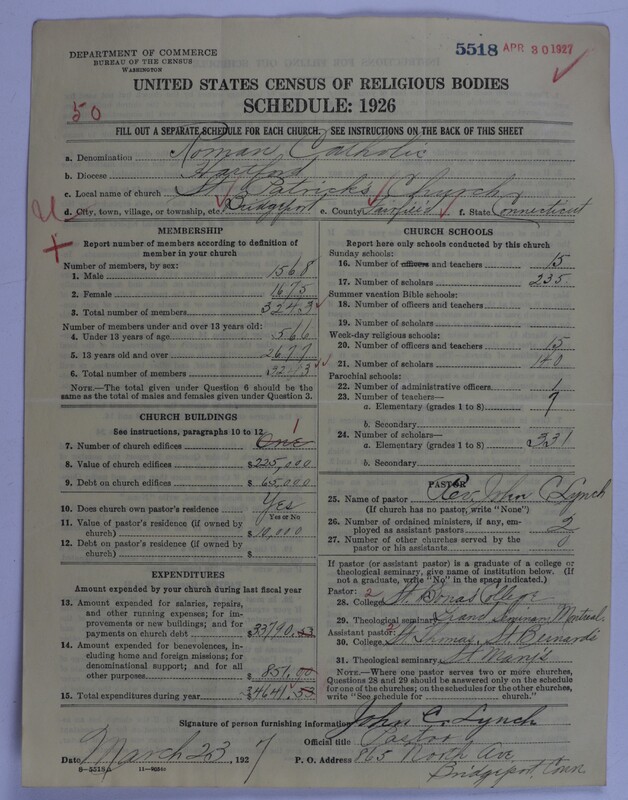 DEPARTMENT OF COMMERCE
BUREAU OF THE CENSUS
WASHINGTON
5518 APR 30 1927
UNITED STATES CENSUS OF RELIGIOUS BODIES
SCHEDULE: 1926
50
FILL OUT A SEPARATE SCHEDULE FOR EACH CHURCH. SEE INSTRUCTIONS ON THE BACK OF THIS SHEET
a. Denomination Roman Catholic
b. Diocese Hartford
c. Local name of church St. Patricks Church
d. City, town, village, or township, etc. Bridgeport e. County Fairfield f. State Connecticut
MEMBERSHIP
Report number of members according to definition of member in your church
Number of members, by sex:
1. Male 1568
2. Female 1675
3. Total number of members 3243
Number of members under and over 13 years old:
4. Under 13 years of age 566
5. 13 years old and over 2677
6. Total number of members 3243
NOTE.—The total given under Question 6 should be the same as the total of males and females given under Question 3.
CHURCH BUILDINGS
See instructions, paragraphs 10 to 12
7. Number of church edifices One 1
8. Value of church edifices $225,000
9. Debt on church edifices $65,000
10. Does church own pastor's residence Yes
Yes or No
11. Value of pastor's residence (if owned by church) $10,000
12. Debt on pastor's residence (if owned by church) $
EXPENDITURES
Amount expended by your church during last fiscal year
13. Amount expended for salaries, repairs, and other running expenses; for improvements or new buildings; and for payments on church debt $33790.53
14. Amount expended for benevolences, including home and foreign missions; for denominational support; and for all other purposes $851.00
15. Total expenditures during year $34641.53
CHURCH SCHOOLS
Report here only schools conducted by this church
Sunday schools:
16. Number of officers and teachers 15
17. Number of scholars 235
Summer vacation Bible schools:
18. Number of officers and teachers
19. Number of scholars
Week-day religious schools:
20. Number of officers and teachers 15
21. Number of scholars 140
Parochial schools:
22. Number of administrative officers 1
23. Number of teachers—
a. Elementary (grades 1 to 8) 7
b. Secondary
24. Number of scholars—
a. Elementary (grades 1 to 8) 331
b. Secondary
PASTOR
25. Name of pastor Rev. John C Lynch
(If church has no pastor, write "None")
26. Number of ordained ministers, if any, employed as assistant pastors 2
27. Number of other churches served by the pastor or his assistants
If pastor (or assistant pastor) is a graduate of a college or theological seminary, give name of institution below. (If not a graduate, write "No" in the space indicated.)
Pastor: 2
28. College St. Bonas College
29. Theological seminary Grand Seminary Montreal
Assistant pastor: 2
30. College St. Thomas, St. Bernards
31. Theological seminary St Mary's
NOTE.—Where one pastor serves two or more churches, Questions 28 and 29 should be answered only on the schedule for one of the churches; on the schedules for the other churches, write "See schedule for church."
Signature of person furnishing information John C. Lynch
Official title Pastor
Date March 23, 1927 P. O. Address 865 North Ave
Bridgeport, Conn